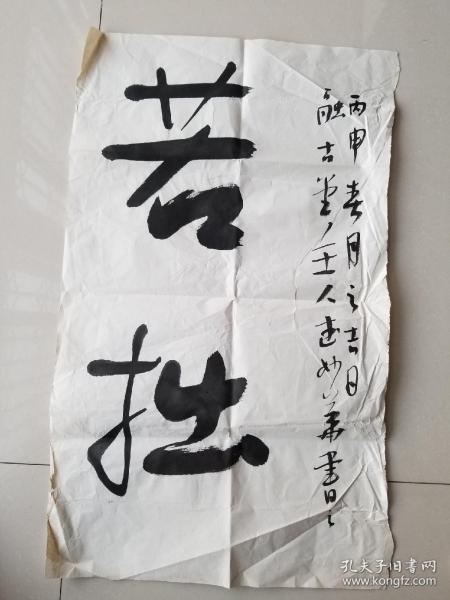 若拙
丙申春月之吉日
融古堂主人建妙華書
孔夫子旧书网
www.kongfz.com